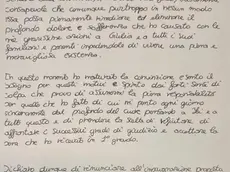 consapevole che comunque purtroppo in nessun modo
essa potrà minimamente lenire ed eliminare il
profondo dolore e sofferenza che ho causato con le
mie gravissime azioni a Giulia e a tutti i suoi
familiari e parenti impedendole di vivere una piena e
meravigliosa esistenza.
In questo momento ho maturato la convinzione e sento il
bisogno per questi motivi e spinto dai forti sensi di
colpa che provo di assumermi la piena responsabilità
per quello che ho fatto di cui mi pento ogni giorno
sinceramente dal profondo del cuore pensando a Lei e a
tutto questo e di prendere la scelta di rifiutare di
affrontare i successivi gradi di giudizio e accettare la
pena che ho ricevuto in 1° grado.
Dichiaro dunque di rinunciare all'impugnazione proposta